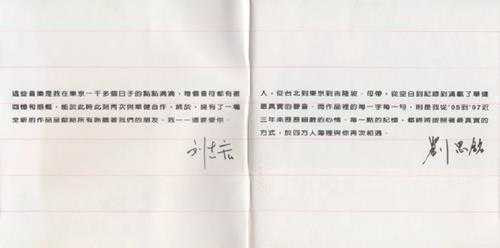 這些音樂是我在東京一千多個日子的點點滴滴，每個音符都有著
回憶和感觸，能於此時此刻再次與華健合作，終於，擁有了一張
全新的作品呈獻給所有聆聽著我們的朋友，我一一還要愛你。
刘志宏
人，從台北到東京到吉隆坡，母帶，從空白到紀錄到滿載了華健
最真實的聲音，而作品裡的每一字每一句，則是我從'95到'97近
三年來歷歷細數的心情，每一點的記憶，都將依照著最真實的
方式，於四方人海裡與你再次相遇。
劉思銘